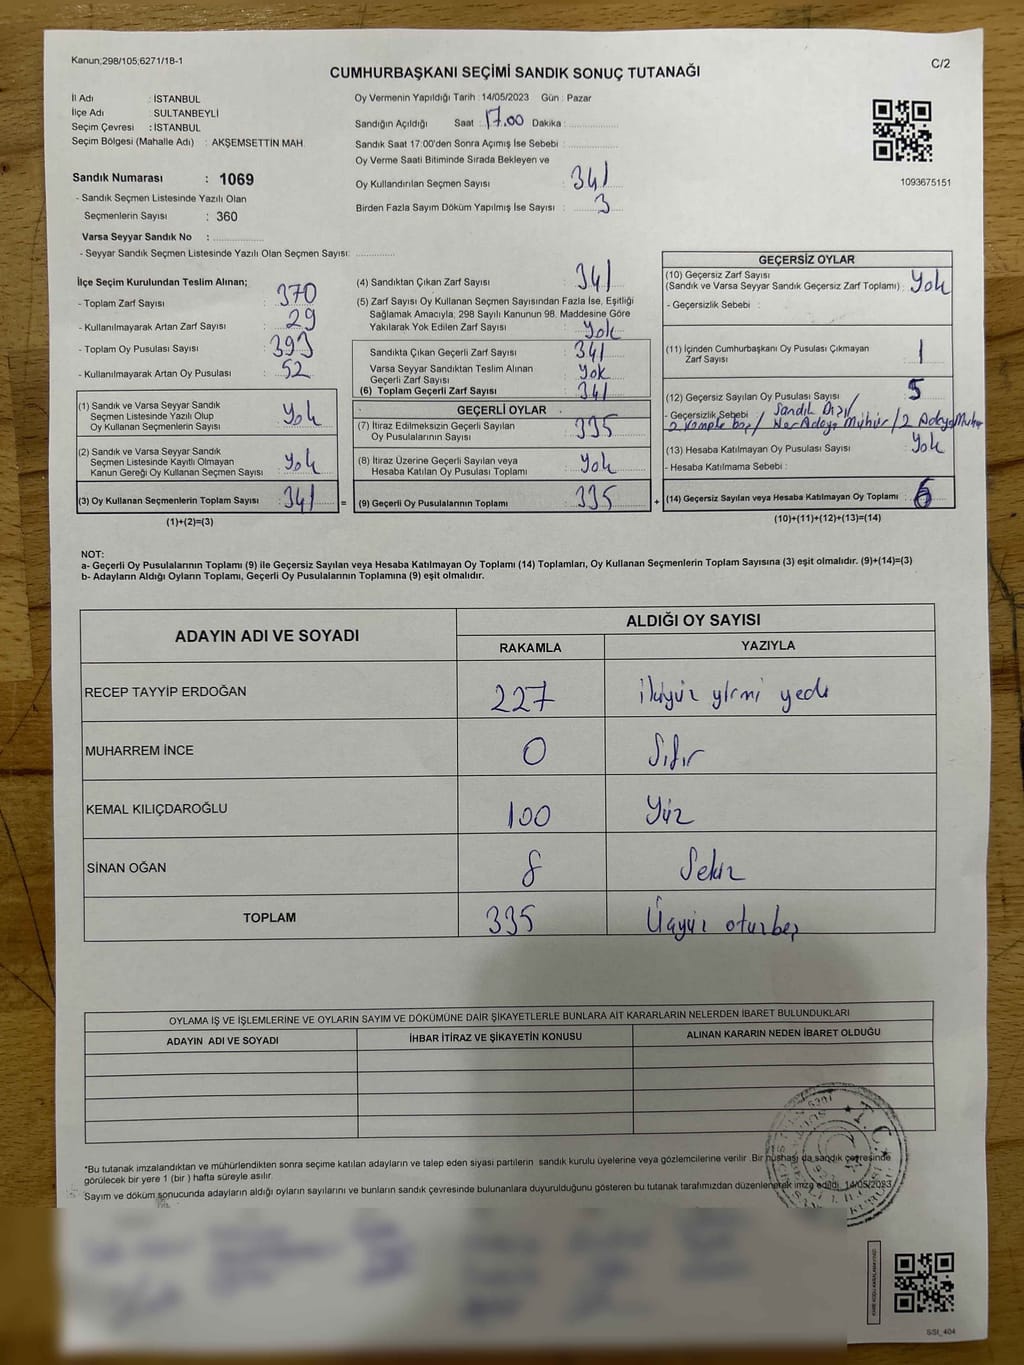 Kanun;298/105;6271/18-1
C/2
CUMHURBAŞKANI SEÇİMİ SANDIK SONUÇ TUTANAĞI
İl Adı : İSTANBUL
İlçe Adı : SULTANBEYLİ
Seçim Çevresi : İSTANBUL
Seçim Bölgesi (Mahalle Adı) : AKŞEMSETTİN MAH.
Sandık Numarası : 1069
- Sandık Seçmen Listesinde Yazılı Olan
Seçmenlerin Sayısı : 360
Varsa Seyyar Sandık No :
- Seyyar Sandık Seçmen Listesinde Yazılı Olan Seçmen Sayısı:
Oy Vermenin Yapıldığı Tarih : 14/05/2023 Gün : Pazar
Sandığın Açıldığı Saat : 17.00 Dakika :
Sandık Saat 17:00'den Sonra Açımış İse Sebebi :
Oy Verme Saati Bitiminde Sırada Bekleyen ve
Oy Kullandırılan Seçmen Sayısı : 341
Birden Fazla Sayım Döküm Yapılmış İse Sayısı : 3
1093675151
İlçe Seçim Kurulundan Teslim Alınan;
- Toplam Zarf Sayısı : 370
- Kullanılmayarak Artan Zarf Sayısı : 29
- Toplam Oy Pusulası Sayısı : 393
- Kullanılmayarak Artan Oy Pusulası : 52
(1) Sandık ve Varsa Seyyar Sandık
Seçmen Listesinde Yazılı Olup
Oy Kullanan Seçmenlerin Sayısı : Yok
(2) Sandık ve Varsa Seyyar Sandık
Seçmen Listesinde Kayıtlı Olmayan
Kanun Gereği Oy Kullanan Seçmen Sayısı : Yok
(3) Oy Kullanan Seçmenlerin Toplam Sayısı : 341 =
(1)+(2)=(3)
(4) Sandıktan Çıkan Zarf Sayısı : 341
(5) Zarf Sayısı Oy Kullanan Seçmen Sayısından Fazla İse, Eşitliği
Sağlamak Amacıyla, 298 Sayılı Kanunun 98. Maddesine Göre
Yakılarak Yok Edilen Zarf Sayısı : Yok
Sandıkta Çıkan Geçerli Zarf Sayısı : 341
Varsa Seyyar Sandıktan Teslim Alınan
Geçerli Zarf Sayısı : Yok
(6) Toplam Geçerli Zarf Sayısı : 341
GEÇERLİ OYLAR
(7) İtiraz Edilmeksizin Geçerli Sayılan
Oy Pusulalarının Sayısı : 335
(8) İtiraz Üzerine Geçerli Sayılan veya
Hesaba Katılan Oy Pusulası Toplamı : Yok
(9) Geçerli Oy Pusulalarının Toplamı : 335 +
GEÇERSİZ OYLAR
(10) Geçersiz Zarf Sayısı
(Sandık ve Varsa Seyyar Sandık Geçersiz Zarf Toplamı) : Yok
- Geçersizlik Sebebi :
(11) İçinden Cumhurbaşkanı Oy Pusulası Çıkmayan
Zarf Sayısı : 1
(12) Geçersiz Sayılan Oy Pusulası Sayısı : 5
- Geçersizlik Sebebi : Sandık Dışı/
2 komple boş/ Her Adaya Mühür/ 2 Adaya Mühür
(13) Hesaba Katılmayan Oy Pusulası Sayısı : Yok
- Hesaba Katılmama Sebebi :
(14) Geçersiz Sayılan veya Hesaba Katılmayan Oy Toplamı : 6
(10)+(11)+(12)+(13)=(14)
NOT:
a- Geçerli Oy Pusulalarının Toplamı (9) ile Geçersiz Sayılan veya Hesaba Katılmayan Oy Toplamı (14) Toplamları, Oy Kullanan Seçmenlerin Toplam Sayısına (3) eşit olmalıdır. (9)+(14)=(3)
b- Adayların Aldığı Oyların Toplamı, Geçerli Oy Pusulalarının Toplamına (9) eşit olmalıdır.
ADAYIN ADI VE SOYADI ALDIĞI OY SAYISI
RAKAMLA YAZIYLA
RECEP TAYYİP ERDOĞAN 227 ikiyüz yirmi yedi
MUHARREM İNCE 0 Sıfır
KEMAL KILIÇDAROĞLU 100 Yüz
SİNAN OĞAN 8 Sekiz
TOPLAM 335 Üçyüz otuzbeş
OYLAMA İŞ VE İŞLEMLERİNE VE OYLARIN SAYIM VE DÖKÜMÜNE DAİR ŞİKAYETLERLE BUNLARA AİT KARARLARIN NELERDEN İBARET BULUNDUKLARI
ADAYIN ADI VE SOYADI İHBAR İTİRAZ VE ŞİKAYETİN KONUSU ALINAN KARARIN NEDEN İBARET OLDUĞU
*Bu tutanak imzalandıktan ve mühürlendikten sonra seçime katılan adayların ve talep eden siyasi partilerin sandık kurulu üyelerine veya gözlemcilerine verilir .Bir nüshası da sandık çevresinde
görülecek bir yere 1 (bir ) hafta süreyle asılır.
Sayım ve döküm sonucunda adayların aldığı oyların sayılarını ve bunların sandık çevresinde bulunanlara duyurulduğunu gösteren bu tutanak tarafımızdan düzenlenerek imza edildi. 14/05/2023
T.C.
SSI_404